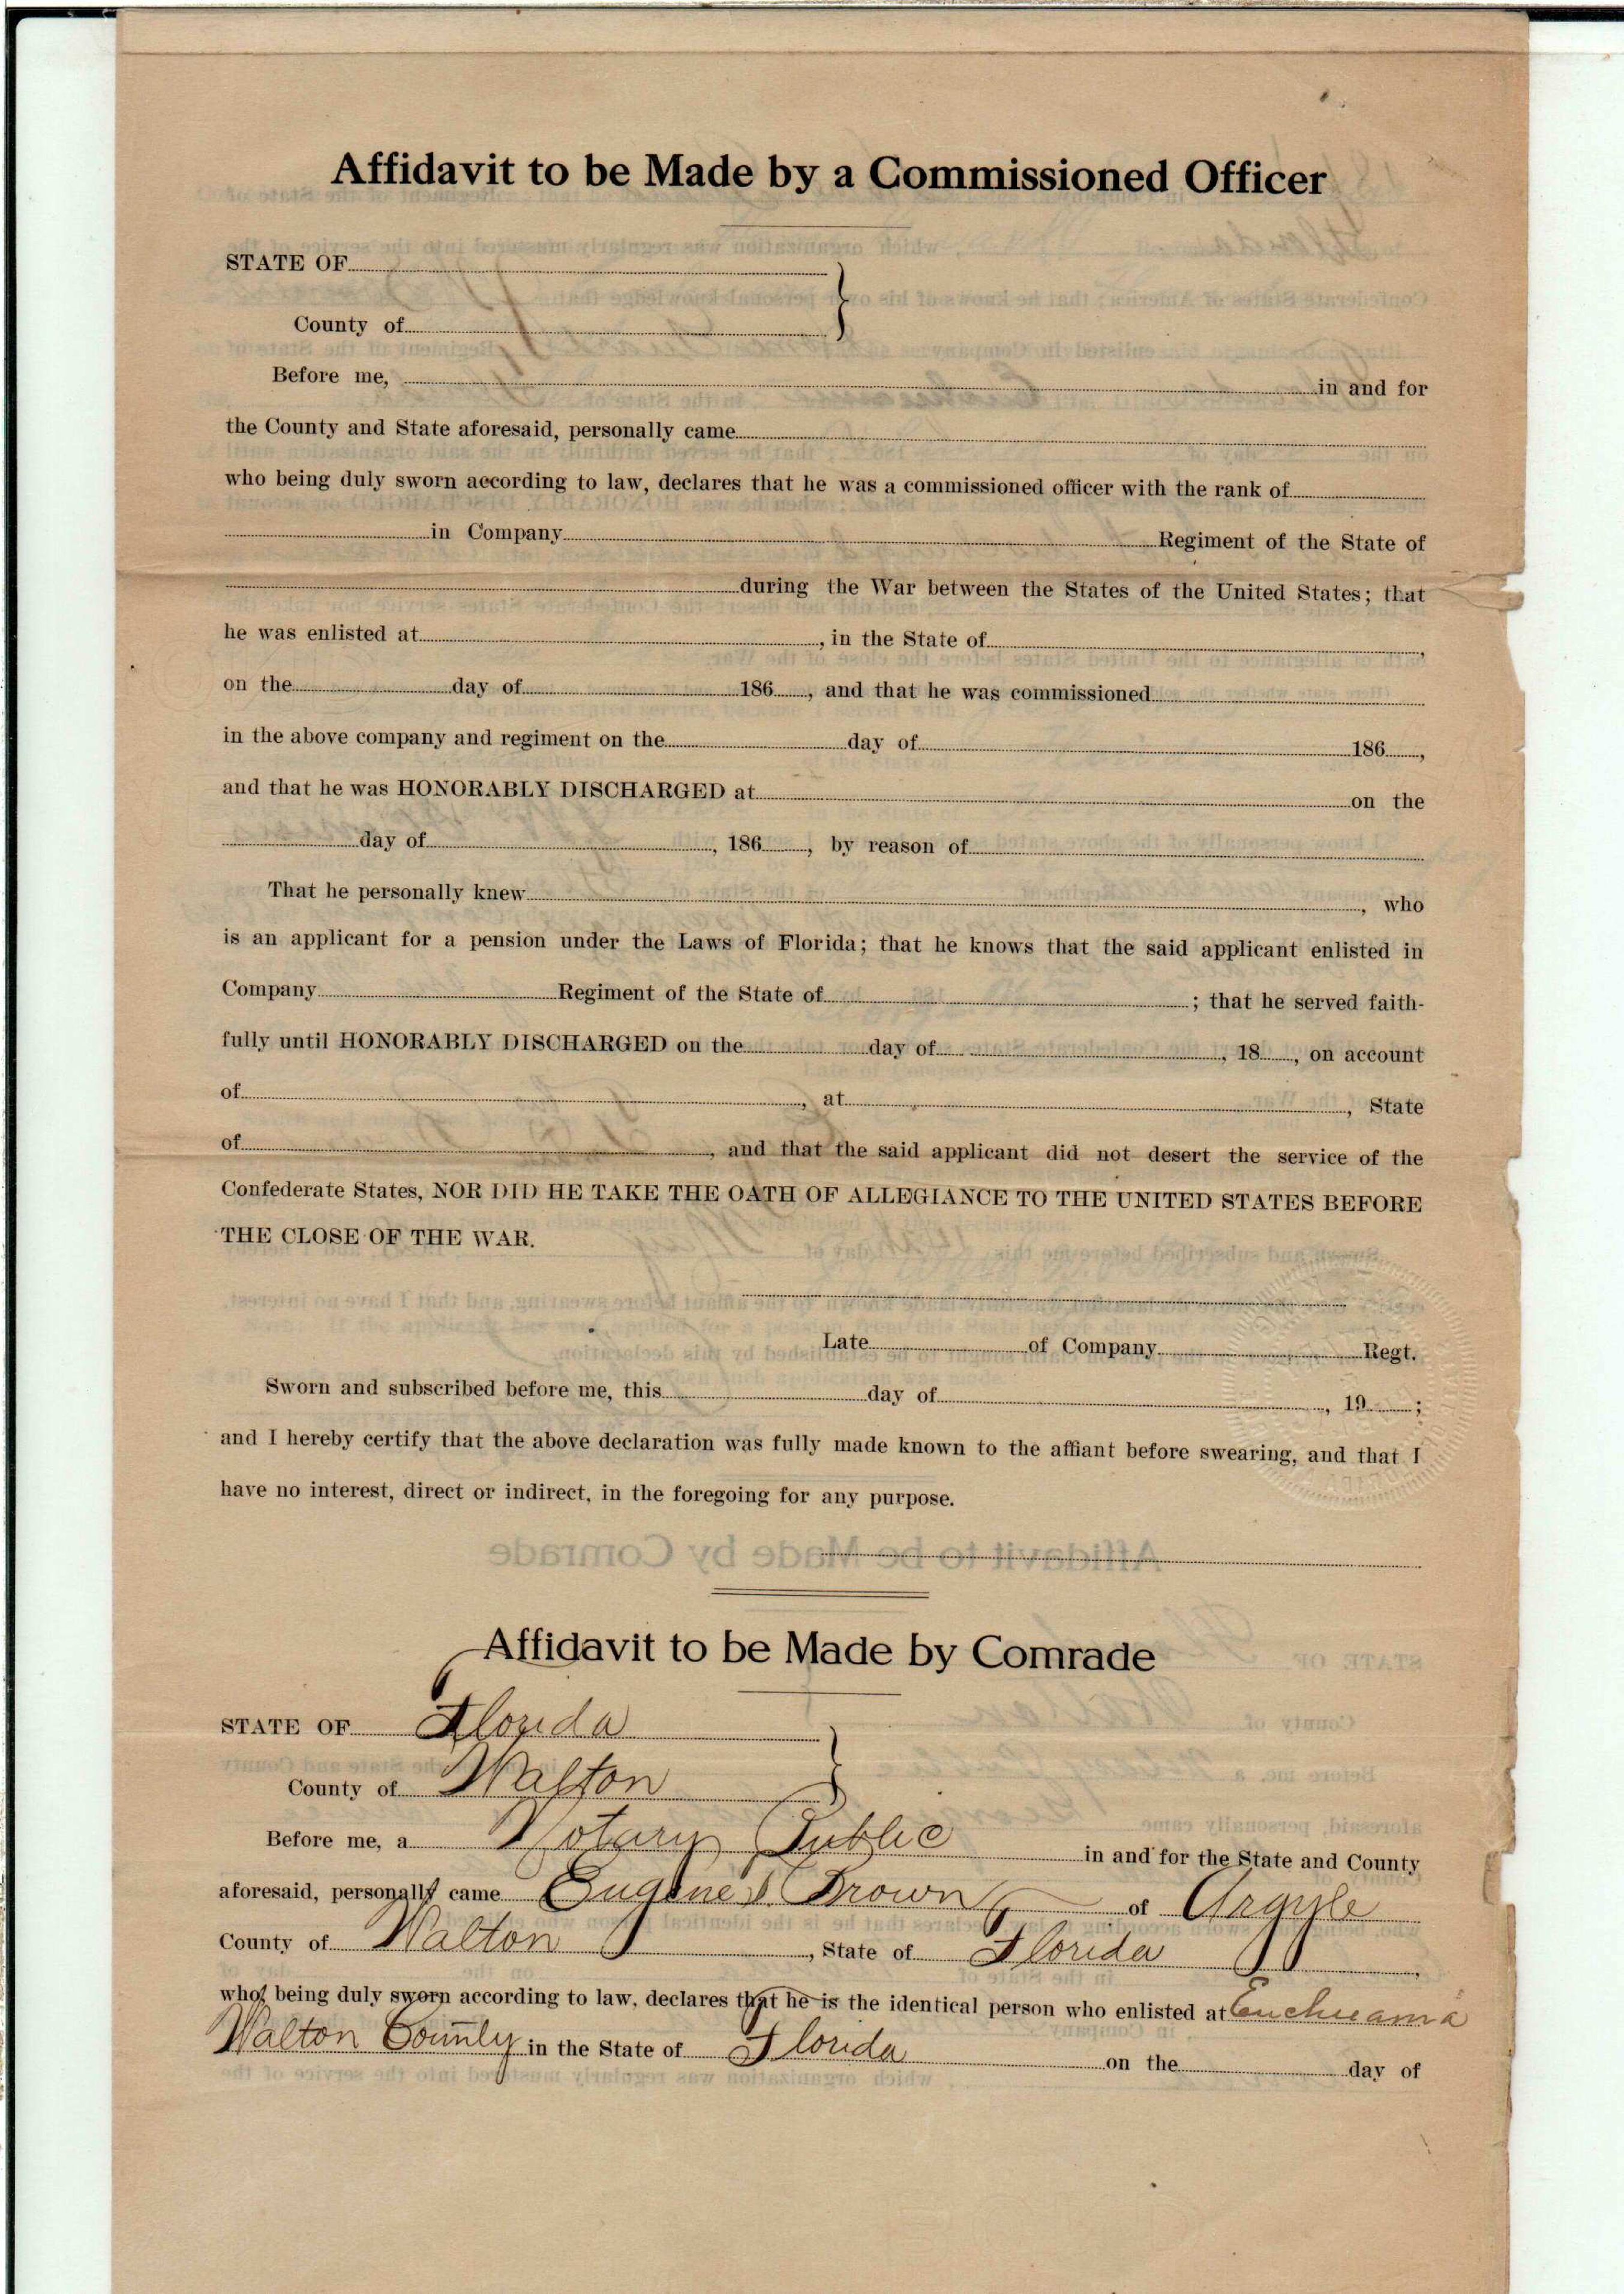 Affidavit to be Made by a Commissioned Officer
STATE OF
County of
Before me, in and for
the County and State aforesaid, personally came
who being duly sworn according to law, declares that he was a commissioned officer with the rank of
in Company Regiment of the State of
during the War between the States of the United States; that
he was enlisted at , in the State of ,
on the day of 186 , and that he was commissioned
in the above company and regiment on the day of 186 ,
and that he was HONORABLY DISCHARGED at on the
day of , 186 , by reason of
That he personally knew , who
is an applicant for a pension under the Laws of Florida; that he knows that the said applicant enlisted in
Company Regiment of the State of ; that he served faith-
fully until HONORABLY DISCHARGED on the day of , 18 , on account
of , at , State
of , and that the said applicant did not desert the service of the
Confederate States, NOR DID HE TAKE THE OATH OF ALLEGIANCE TO THE UNITED STATES BEFORE
THE CLOSE OF THE WAR.
Late of Company Regt.
Sworn and subscribed before me, this day of , 19 ;
and I hereby certify that the above declaration was fully made known to the affiant before swearing, and that I
have no interest, direct or indirect, in the foregoing for any purpose.
Affidavit to be Made by Comrade
STATE OF Florida
County of Walton
Before me, a Notary Public in and for the State and County
aforesaid, personally came Eugene D. Brown of Argyle
County of Walton , State of Florida ,
who, being duly sworn according to law, declares that he is the identical person who enlisted at Euchee ama
Walton County in the State of Florida on the day of